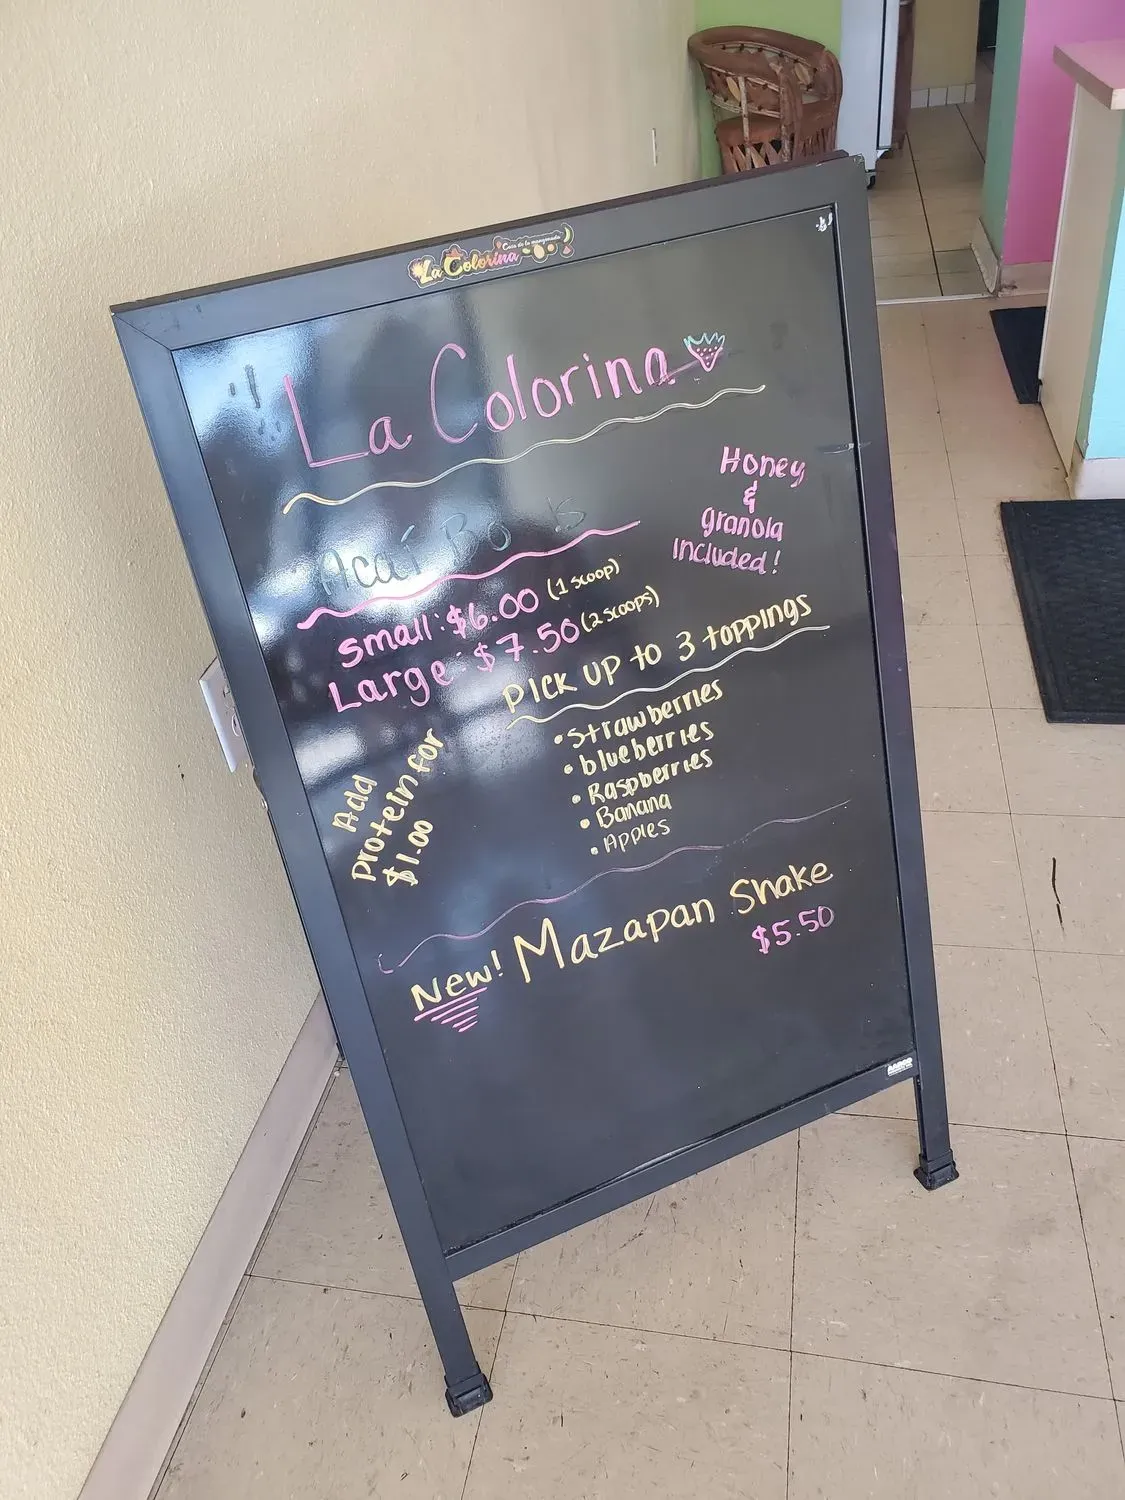 Casa de la mangonada
La Colorina
La Colorina
Honey
&
granola
included!
Acaí Bo ls
small: $6.00 (1 scoop)
Large: $7.50 (2 scoops)
Pick up to 3 toppings
• strawberries
• blueberries
• Raspberries
• Banana
• Apples
Add
protein for
$1.00
New! Mazapan Shake
$5.50
AARCO